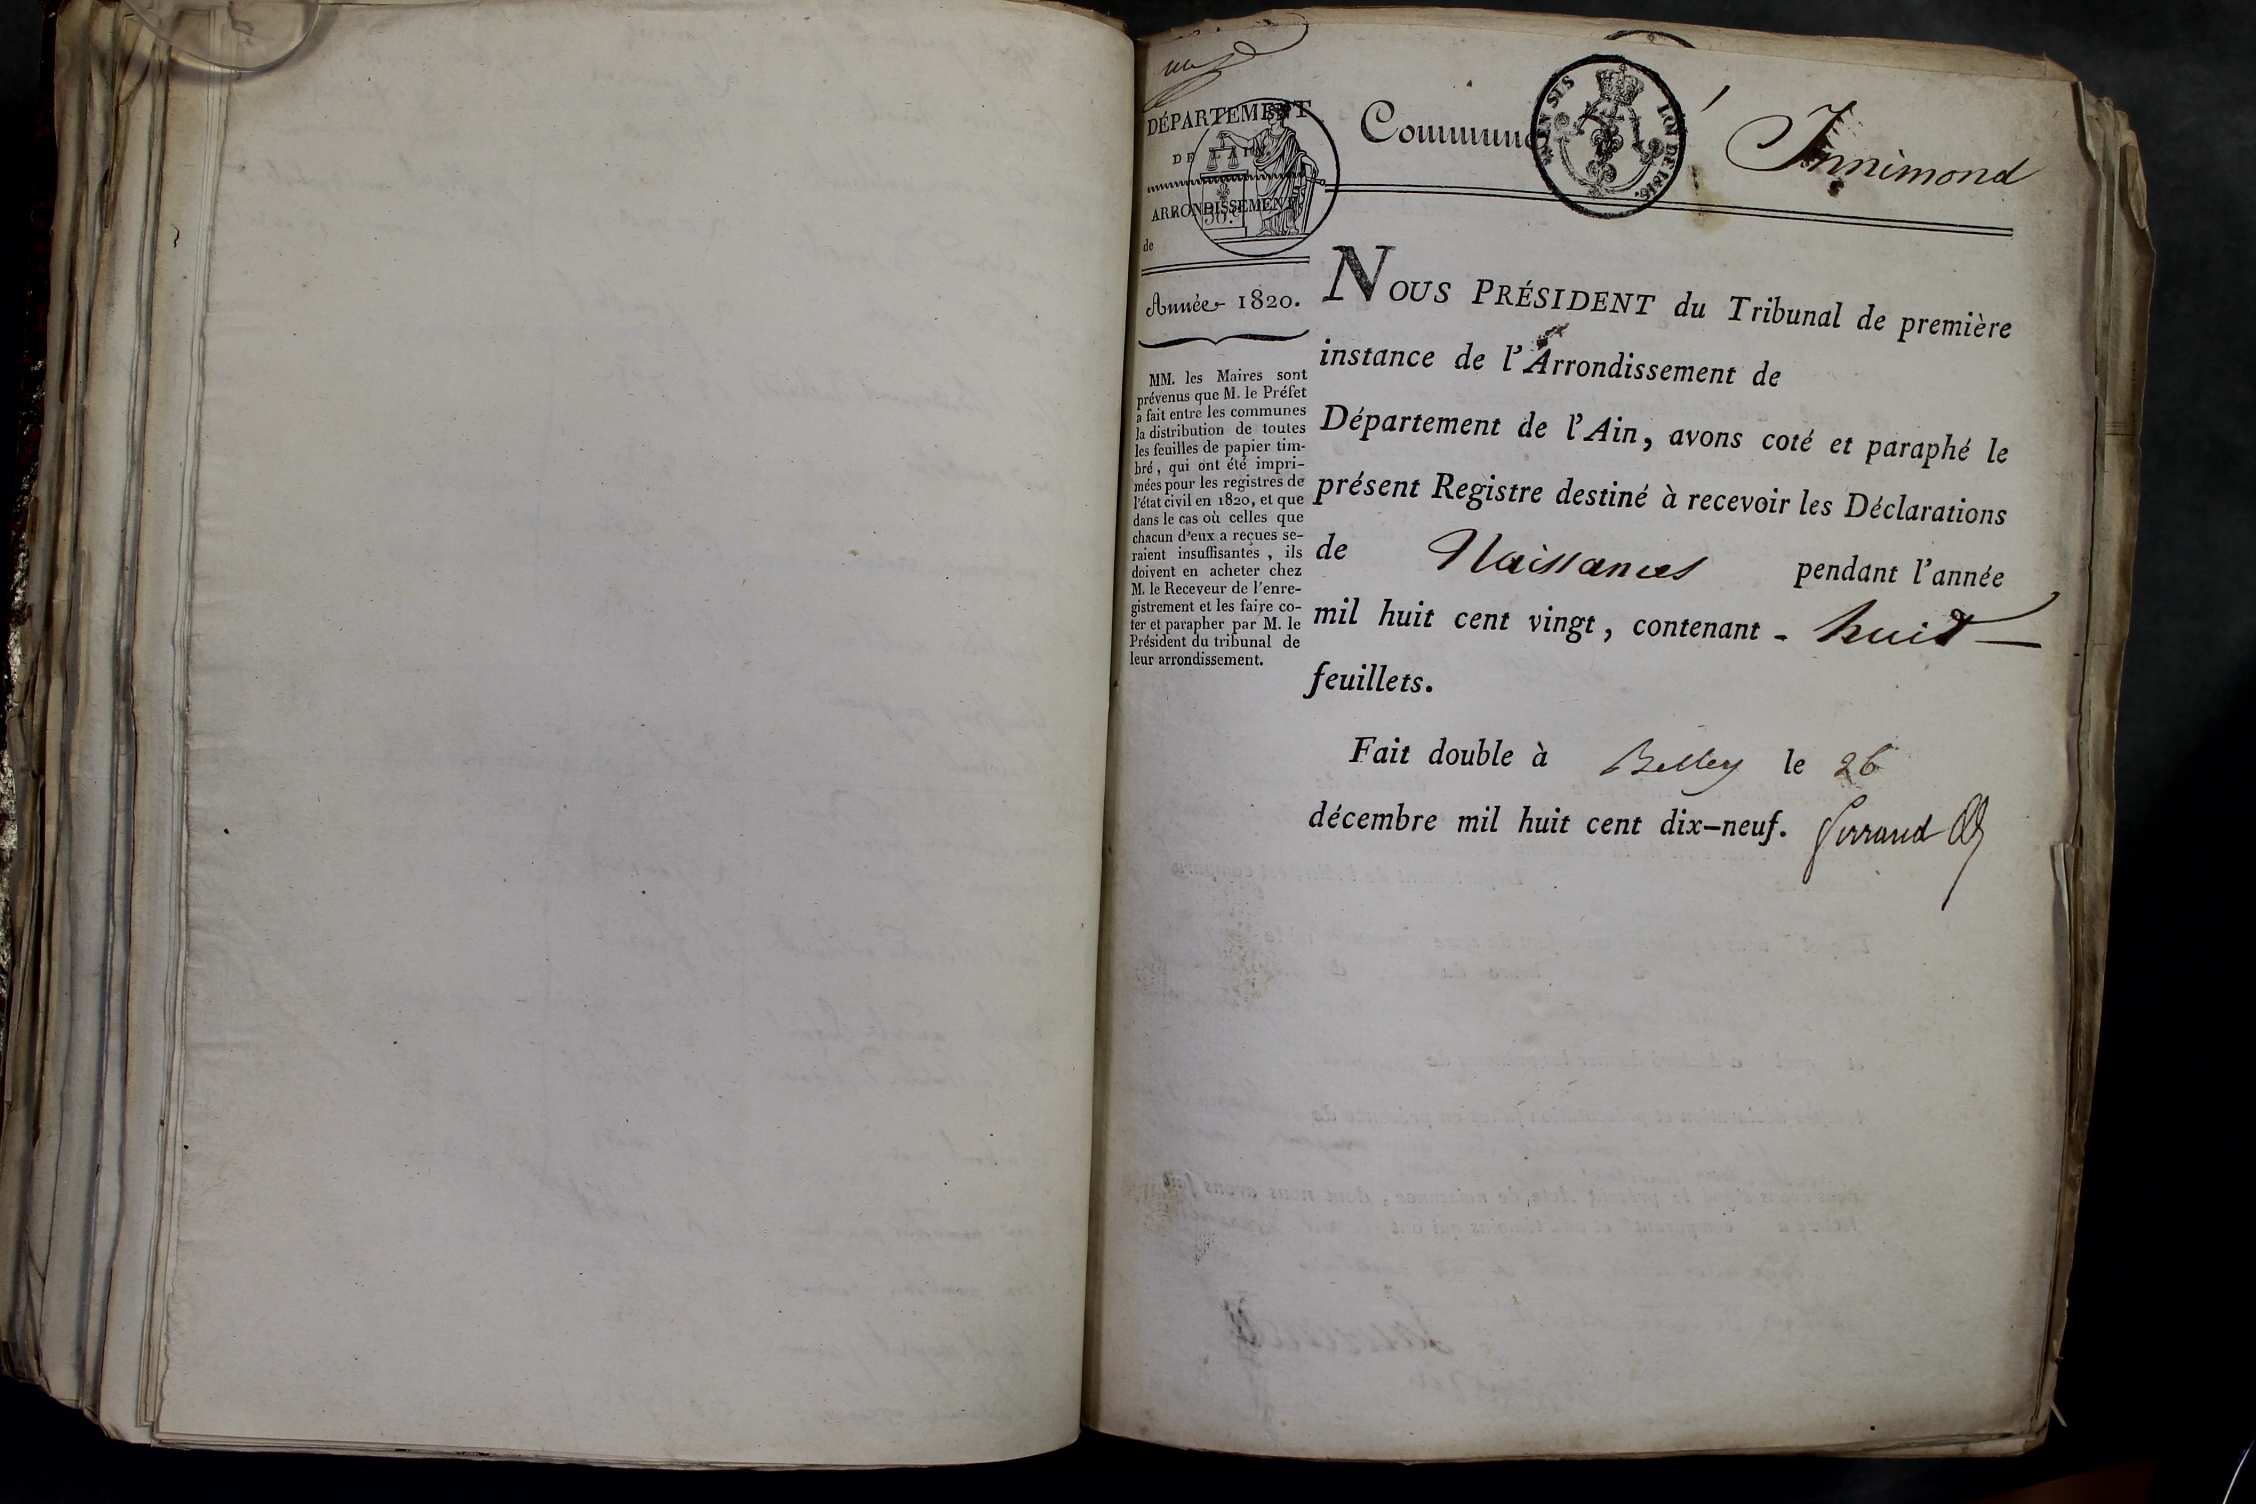 DÉPARTEMENT
DE L'AIN.
ARRONDISSEMENT
de
Année 1820.
MM. les Maires sont
prévenus que M. le Préfet
a fait entre les communes
la distribution de toutes
les feuilles de papier tim-
bré, qui ont été impri-
mées pour les registres de
l'état civil en 1820, et que
dans le cas où celles que
chacun d'eux a reçues se-
raient insuffisantes, ils
doivent en acheter chez
M. le Receveur de l'enre-
gistrement et les faire co-
ter et parapher par M. le
Président du tribunal de
leur arrondissement.
Commune Innimond
EN SUS
LOI DE 1816.
NOUS PRÉSIDENT du Tribunal de première
instance de l'Arrondissement de
Département de l'Ain, avons coté et paraphé le
présent Registre destiné à recevoir les Déclarations
de Naissances pendant l'année
mil huit cent vingt, contenant - huit
feuillets.
Fait double à Belley le 26
décembre mil huit cent dix-neuf. Ferrand